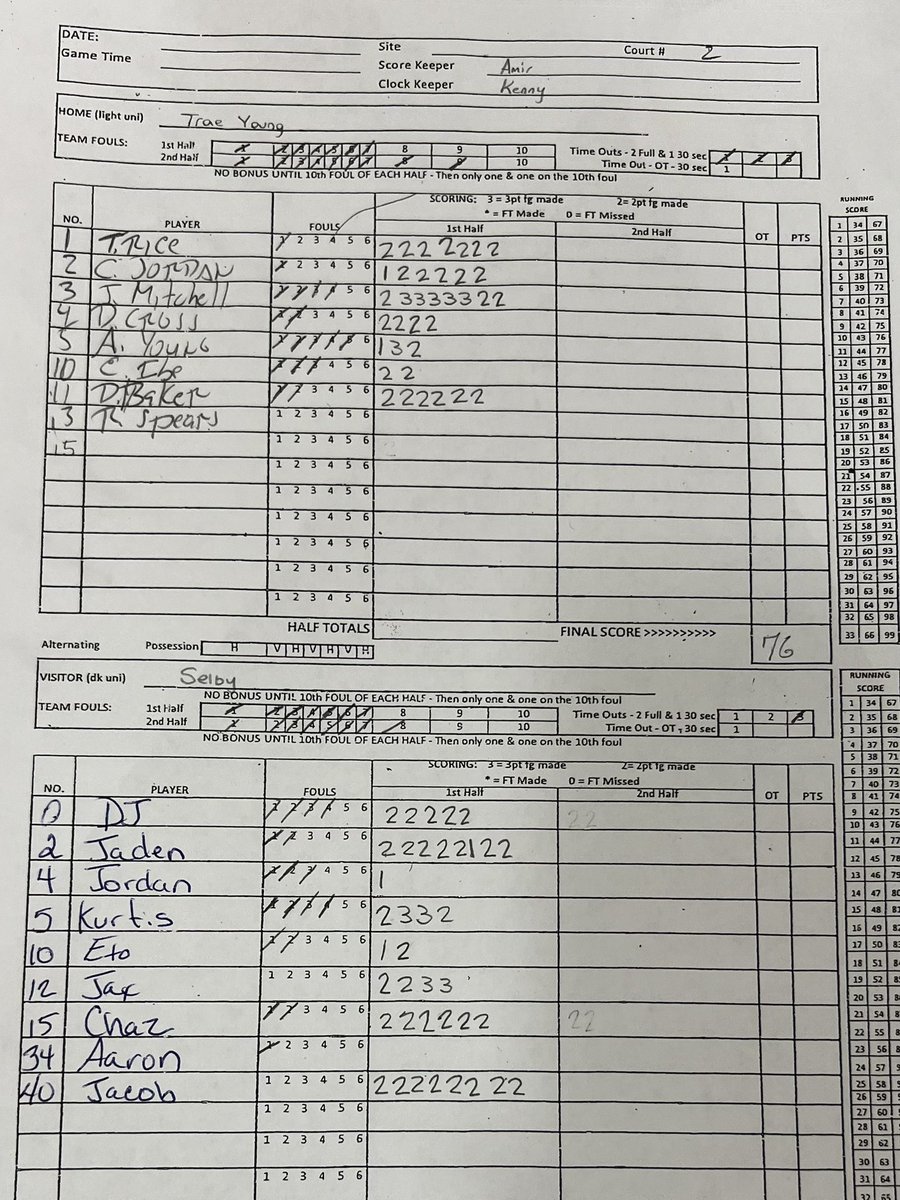 DATE:
Site Court # 2
Game Time
Score Keeper Amir
Clock Keeper Kenny
HOME (light uni) Trae Young
TEAM FOULS: 1st Half 1 2 3 4 5 6 7 8 9 10 Time Outs - 2 Full & 1 30 sec 1 2 3
2nd Half 1 2 3 4 5 6 7 8 9 10 Time Out - OT - 30 sec 1
NO BONUS UNTIL 10th FOUL OF EACH HALF - Then only one & one on the 10th foul
SCORING: 3 = 3pt fg made 2= 2pt fg made
* = FT Made 0 = FT Missed
NO. PLAYER FOULS 1st Half 2nd Half OT PTS
1 T. RICE 1 2 3 4 5 6 2222222
2 C. JORDAN 1 2 3 4 5 6 122222
3 J. Mitchell 1 2 3 4 5 6 23333322
4 D. CROSS 1 2 3 4 5 6 2222
5 A. YOUNG 1 2 3 4 5 6 132
10 C. Ibe 1 2 3 4 5 6 22
11 D. BAKER 1 2 3 4 5 6 222222
13 R Spears 1 2 3 4 5 6
15 1 2 3 4 5 6
1 2 3 4 5 6
1 2 3 4 5 6
1 2 3 4 5 6
1 2 3 4 5 6
1 2 3 4 5 6
1 2 3 4 5 6
HALF TOTALS FINAL SCORE >>>>>>>>>> 76
Alternating Possession H V H V H V H
RUNNING
SCORE
1 34 67
2 35 68
3 36 69
4 37 70
5 38 71
6 39 72
7 40 73
8 41 74
9 42 75
10 43 76
11 44 77
12 45 78
13 46 79
14 47 80
15 48 81
16 49 82
17 50 83
18 51 84
19 52 85
20 53 86
21 54 87
22 55 88
23 56 89
24 57 90
25 58 91
26 59 92
27 60 93
28 61 94
29 62 95
30 63 96
31 64 97
32 65 98
33 66 99
VISITOR (dk uni) Selby
NO BONUS UNTIL 10th FOUL OF EACH HALF - Then only one & one on the 10th foul
TEAM FOULS: 1st Half 1 2 3 4 5 6 7 8 9 10 Time Outs - 2 Full & 1 30 sec 1 2 3
2nd Half 1 2 3 4 5 6 7 8 9 10 Time Out - OT - 30 sec 1
NO BONUS UNTIL 10th FOUL OF EACH HALF - Then only one & one on the 10th foul
SCORING: 3 = 3pt fg made 2= 2pt fg made
* = FT Made 0 = FT Missed
NO. PLAYER FOULS 1st Half 2nd Half OT PTS
0 DJ 1 2 3 4 5 6 22222 22
2 Jaden 1 2 3 4 5 6 22222122
4 Jordan 1 2 3 4 5 6 1
5 Kurtis 1 2 3 4 5 6 2332
10 Eto 1 2 3 4 5 6 12
12 Jax 1 2 3 4 5 6 2233
15 Chaz 1 2 3 4 5 6 222222 22
34 Aaron 1 2 3 4 5 6
40 Jacob 1 2 3 4 5 6 22222222
1 2 3 4 5 6
1 2 3 4 5 6
1 2 3 4 5 6
RUNNING
SCORE
1 34 67
2 35 68
3 36 69
4 37 70
5 38 71
6 39 72
7 40 73
8 41 74
9 42 75
10 43 76
11 44 77
12 45 78
13 46 79
14 47 80
15 48
16 49
17 50
18 51
19 52
20 53
21 54
22 55
23 56
24 57
25 58
26 59
27 60
28 61
29 62
30 63
31 64
32 65